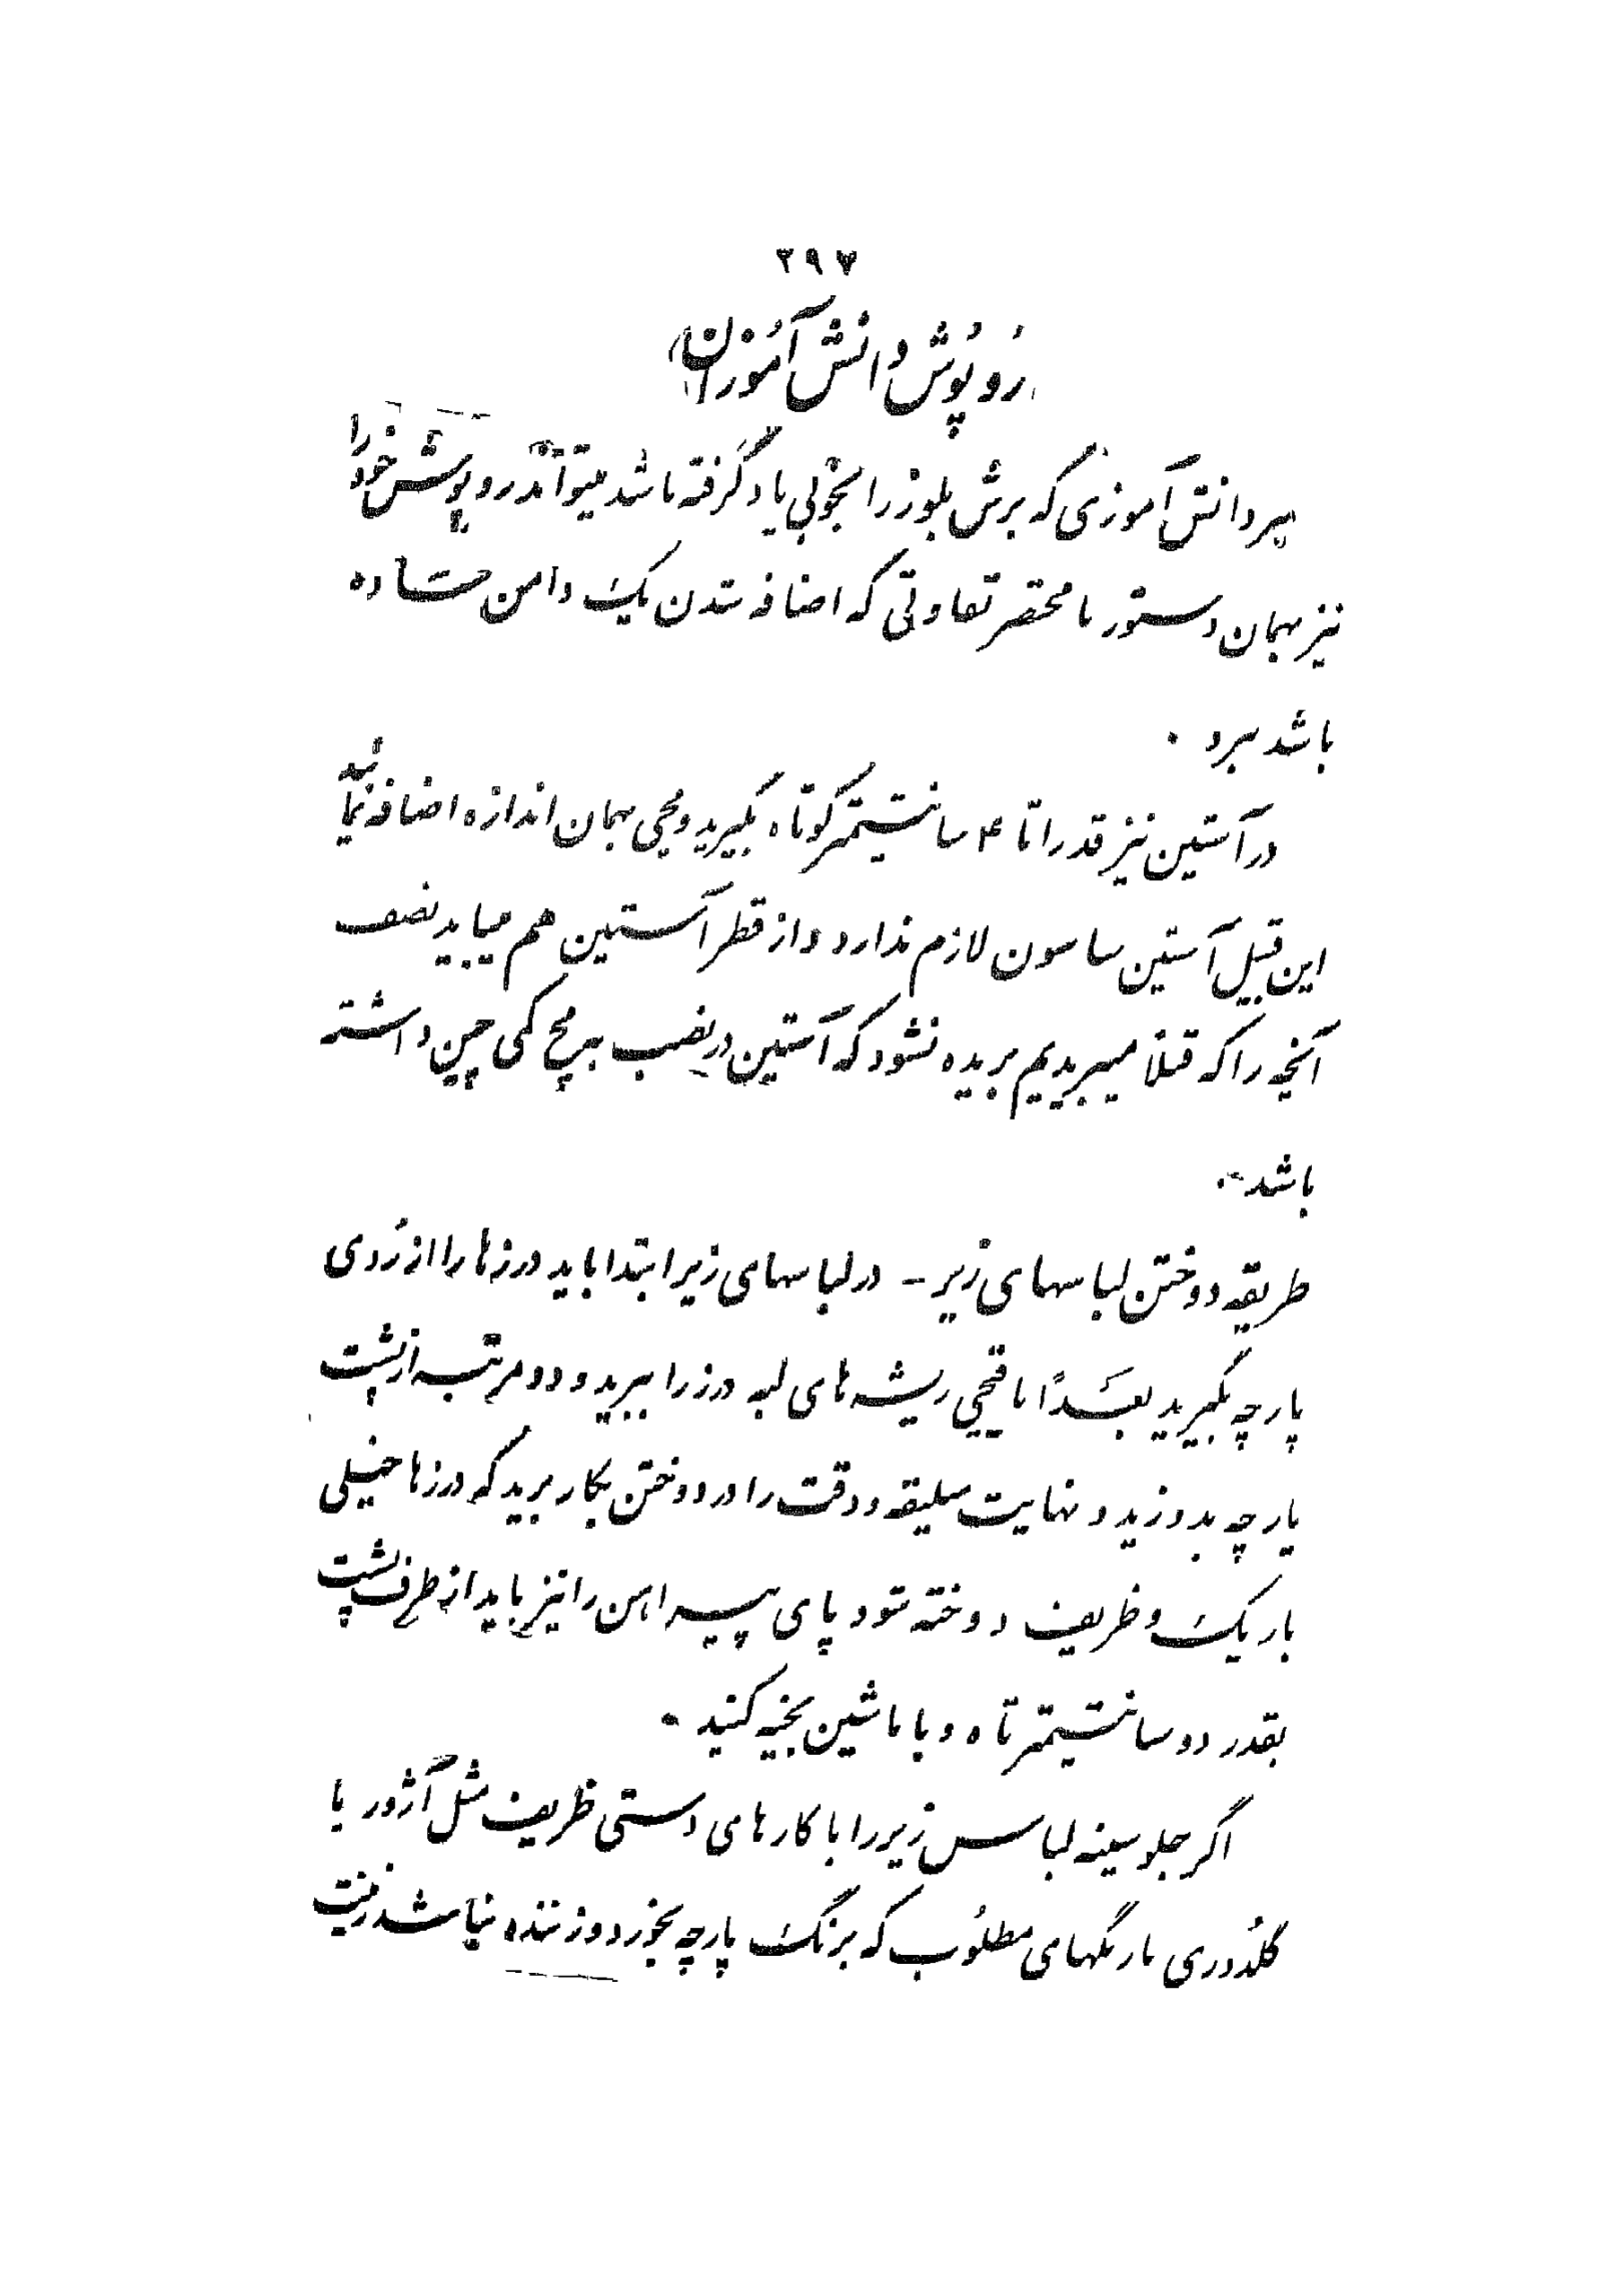 ۲۹۷
روپوش دانش آموزان
هر دانش آموزی که برش بلوز را بخوبی یاد گرفته باشد میتواند روپوش خود را
نیز بهمان دستور با مختصر تفاوتی که اضافه شدن یک دامن ساده
باشد ببرد .
در آستین نیز قد را تا ۴ سانتیمتر کوتاه بگیرید و مچی بهمان اندازه اضافه نمائید
این قبیل آستین ساسون لازم ندارد و از قطر آستین هم میباید نصف
آنچه را که قبلاً میبریدیم بریده نشود که آستین در نصب بمچ کمی چین داشته
باشد .
طریقه دوختن لباسهای زیر - در لباسهای زیر ابتدا باید درزها را از روی
پارچه بگیرید بعداً با قیچی ریشه های لبه درز را ببرید و دو مرتبه از پشت
پارچه بدوزید و نهایت سلیقه و دقت را در دوختن بکار برید که درزها خیلی
باریک و ظریف دوخته شود پای پیراهن را نیز باید از طرف پشت
بقدر دو سانتیمتر تاه و با ماشین بخیه کنید .
اگر جلو سینه لباس زیر را با کارهای دستی ظریف مثل آژور یا
گلدوزی با رنگهای مطلوب که برنگ پارچه بخورد و زننده نباشد زینت